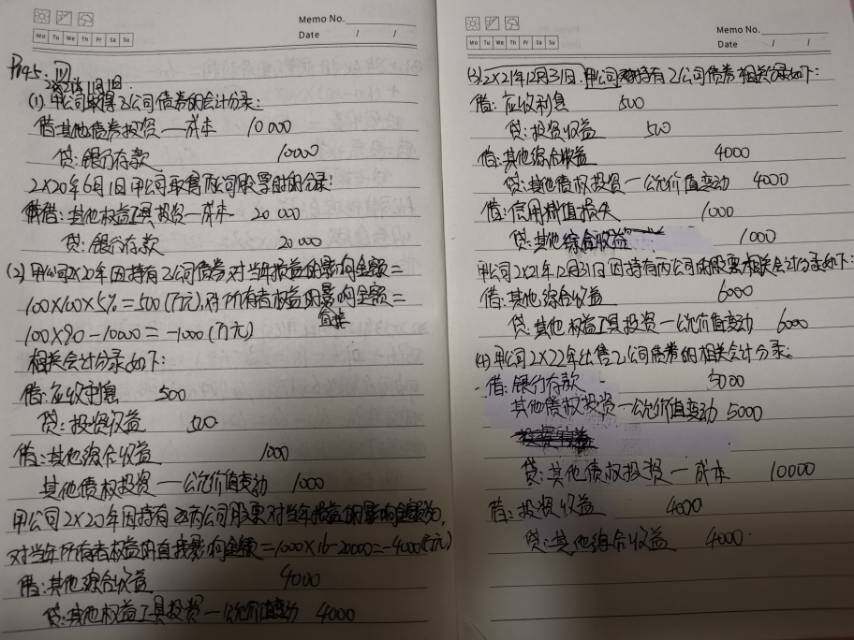 Memo No.
Mo Tu We Th Fr Sa Su
Date / /
P195:
2X20年1月1日
(1) 甲公司取得乙公司债券的会计分录:
借:其他债券投资—成本 10000
贷:银行存款 10000
2X20年6月1日甲公司取得丙公司股票时的分录:
借:其他权益工具投资—成本 20000
贷:银行存款 20000
(2)甲公司2X20年因持有乙公司债券对当年损益的影响金额=
100X100X5%=500(万元),对所有者权益的直接影响金额=
100X90-10000=-1000(万元)
相关会计分录如下:
借:应收利息 500
贷:投资收益 500
借:其他综合收益 1000
其他债权投资—公允价值变动 1000
甲公司2X20年因持有丙公司股票对当年损益的影响金额为0,
对当年所有者权益的直接影响金额=1000X16-20000=-4000(万元)
借:其他综合收益 4000
贷:其他权益工具投资—公允价值变动 4000
Memo No.
Mo Tu We Th Fr Sa Su
Date / /
(3)2X21年12月31日,甲公司持有乙公司债券相关分录如下:
借:应收利息 500
贷:投资收益 500
借:其他综合收益 4000
贷:其他债权投资—公允价值变动 4000
借:信用减值损失 1000
贷:其他综合收益 1000
甲公司2X21年12月31日因持有丙公司的股票相关会计分录如下:
借:其他综合收益 6000
贷:其他权益工具投资—公允价值变动 6000
(4)甲公司2X22年出售乙公司债券的相关会计分录:
借:银行存款 5000
其他债权投资—公允价值变动 5000
贷:其他债权投资—成本 10000
借:投资收益 4000
贷:其他综合收益 4000